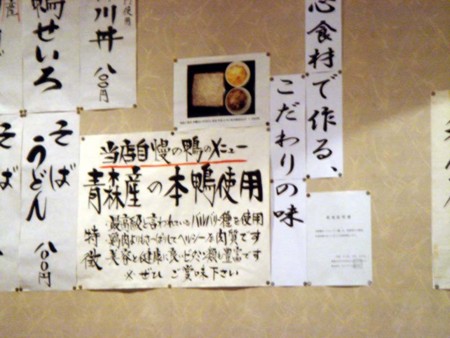 心食材で作る、
こだわりの味
川丼
八〇〇円
鴨せいろ
そば
うどん
八〇〇円
そば
当店自慢の鴨のメニュー
青森産の本鴨使用
特徴
・最高級と言われているバルバリー種を使用
・鶏肉よりさっぱりしてヘルシーな肉質です
・美容と健康に良いビタミン類も豊富です
※ぜひご賞味下さい